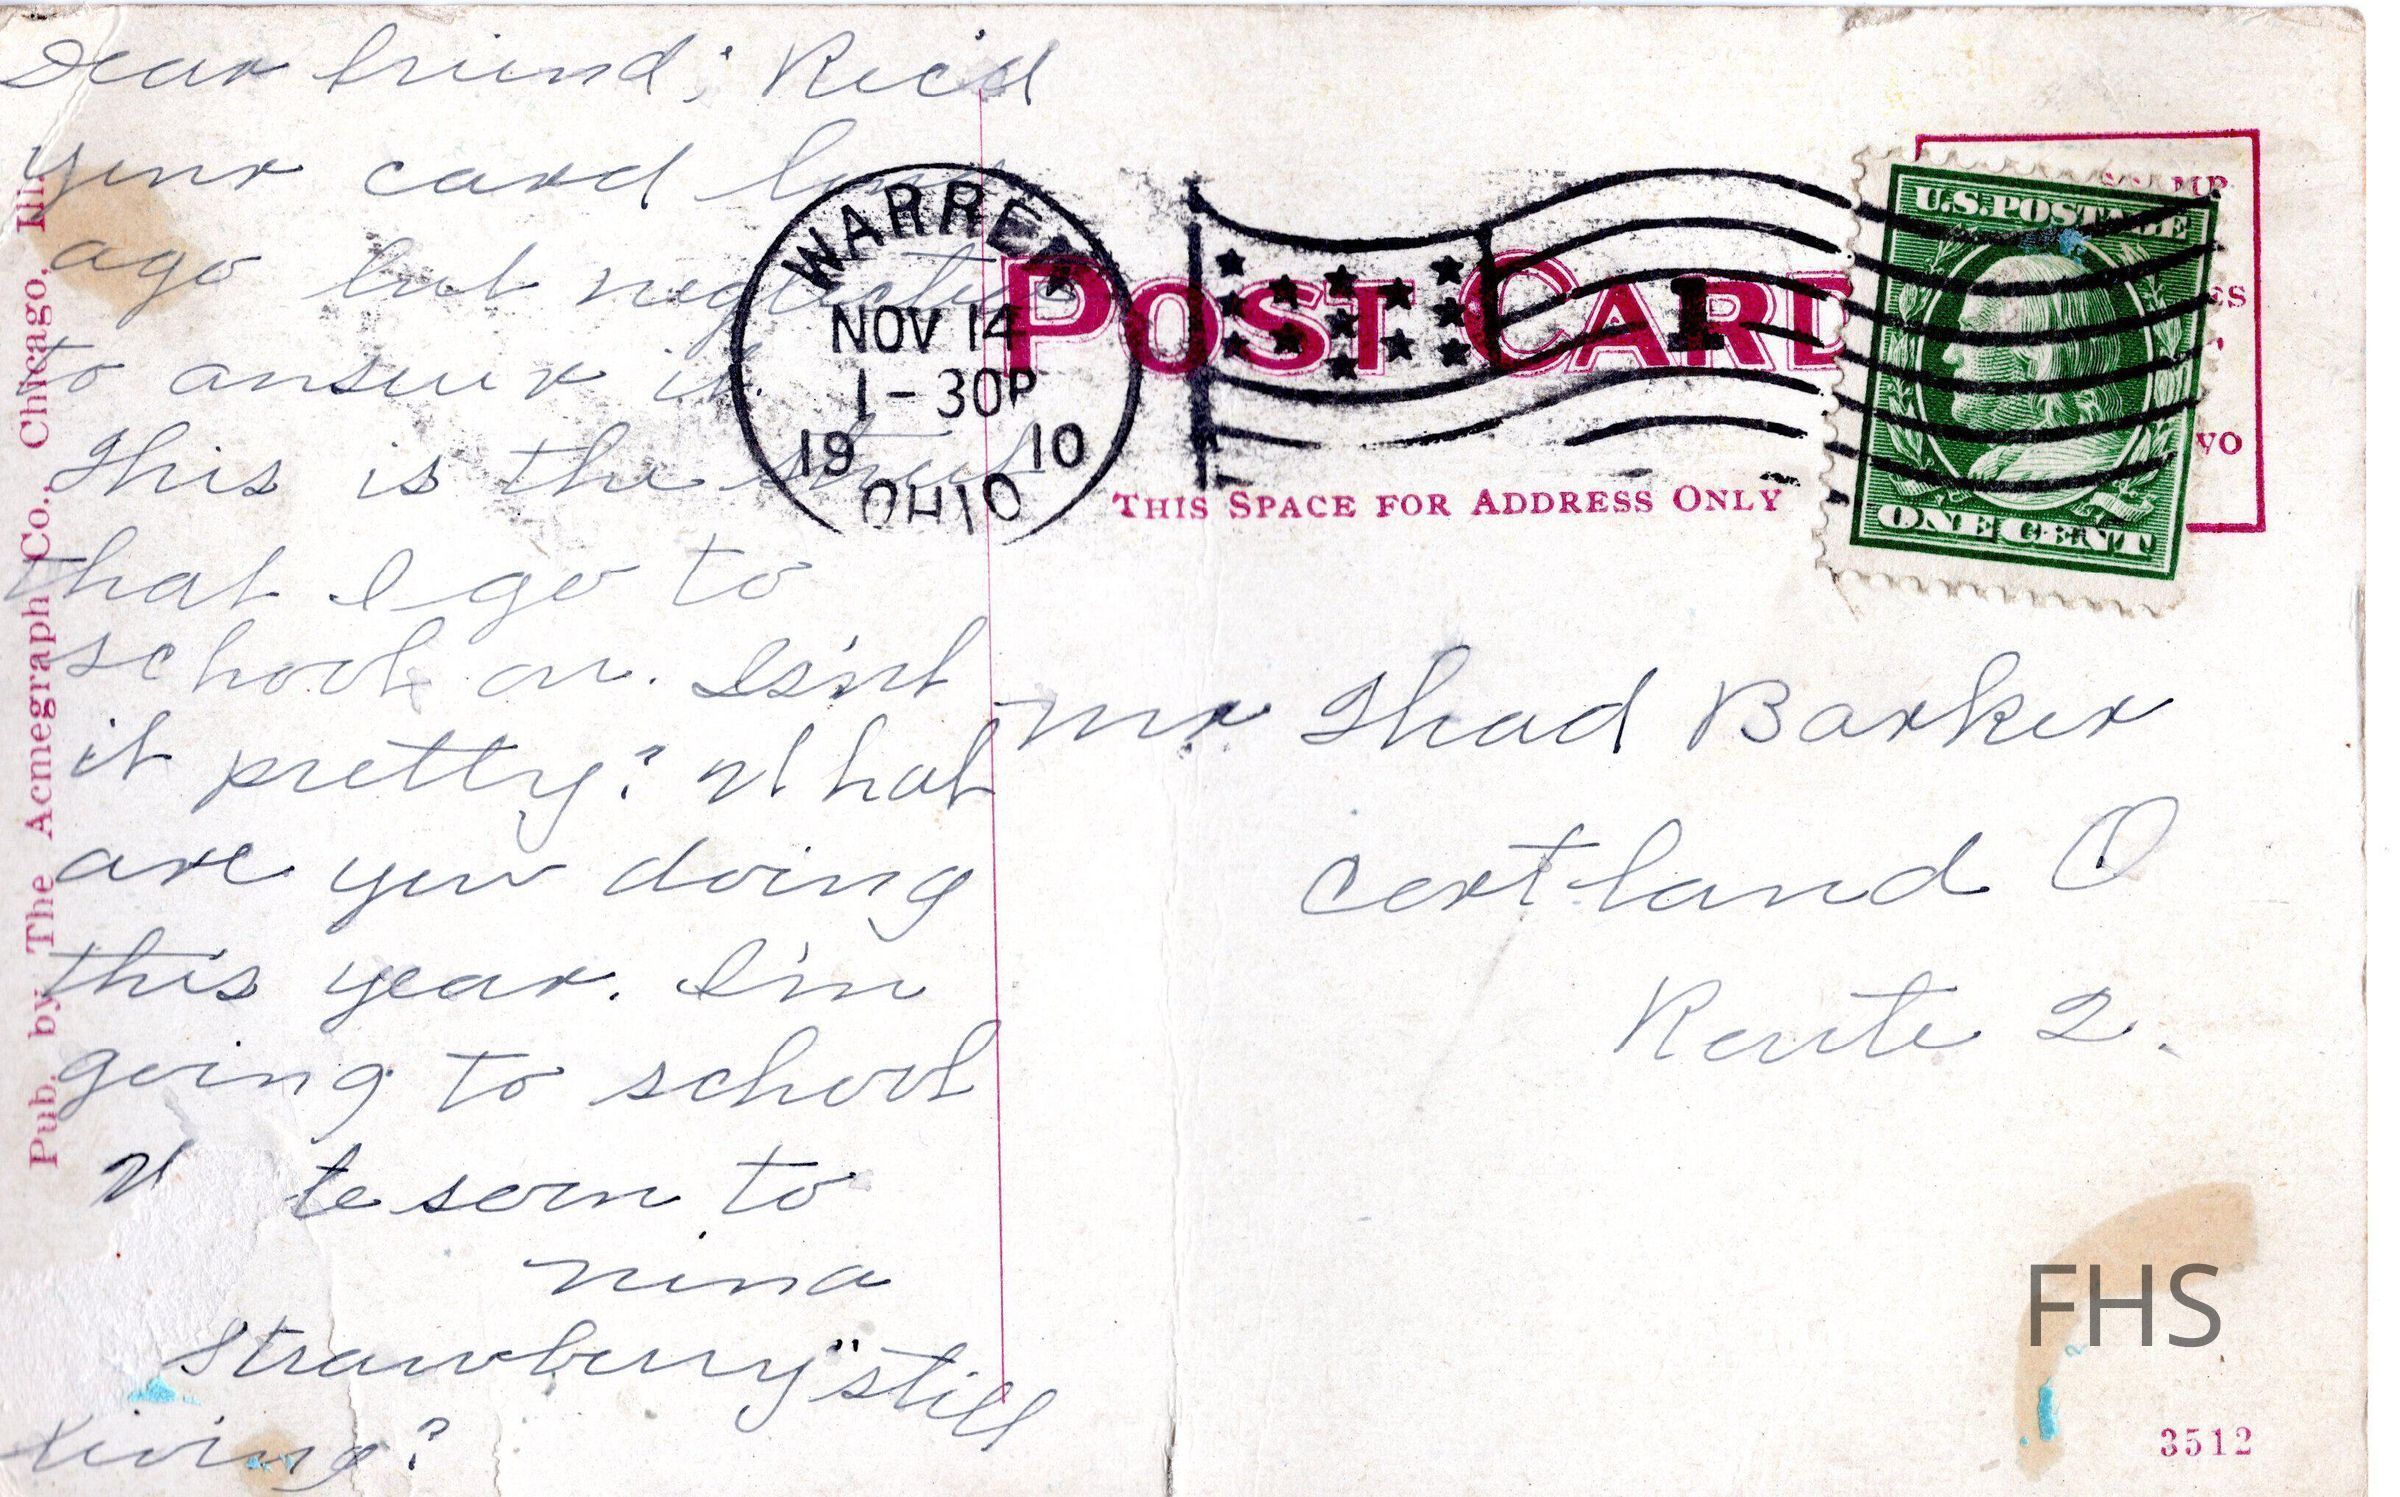 Dear friend; Rec'd
your card long
ago but neglected
to answer it.
This is the street
that I go to
school on. Is'nt
it pretty? What
are you doing
this year. I'm
going to school
soon to
Nina
Strawberry" still
living?
Pub. by The Acmegraph Co., Chicago, Ill.
WARREN
NOV 14
1-30P
19 10
OHIO
POST CARD
1
THIS SPACE FOR ADDRESS ONLY
U.S. POSTAGE
ONE CENT
Mr Thad Barker
Cortland O
Route 2.
FHS
3512